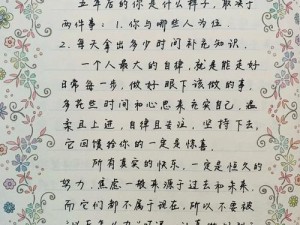 五年后的你是什么样子,取决于
两件事:1.你与哪些人为伍
2.每天拿出多少时间补充知识.
一个人最大的自律,就是能走好
日常每一步,做好眼下该做的事.
多花些时间和心思来充实自己,温
柔且上进,自律且专注,坚持下去,
它回馈给你的一定是惊喜.
所有真实的快乐,一定是恒久的
努力,焦虑一般来源于过去和未来
而它们都不属于现在,所以不要被